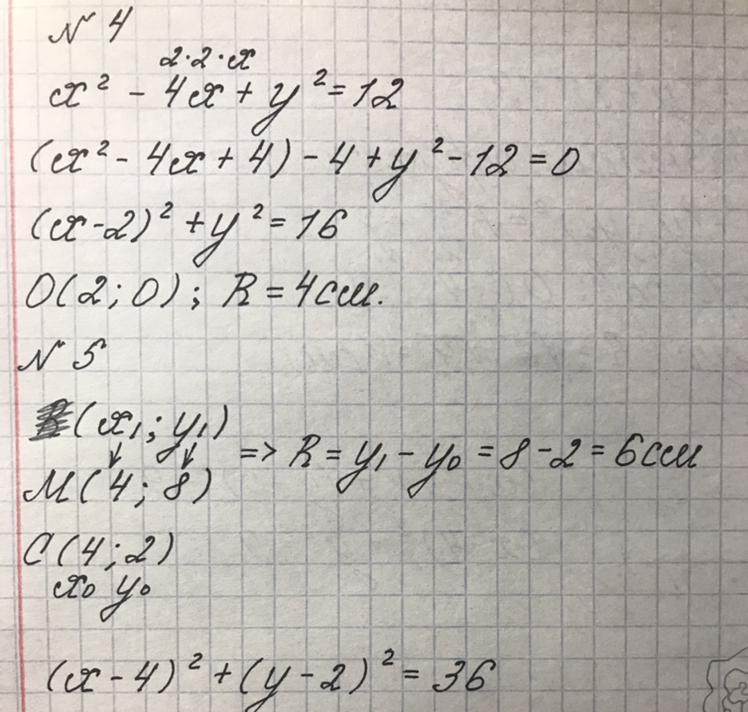 № 4
2·2·x
x² - 4x + y² = 12
(x² - 4x + 4) - 4 + y² - 12 = 0
(x - 2)² + y² = 16
O(2; 0); R = 4см.
№ 5
(x₁; y₁)
=> R = y₁ - y₀ = 8 - 2 = 6см
M(4; 8)
C(4; 2)
x₀ y₀
(x - 4)² + (y - 2)² = 36